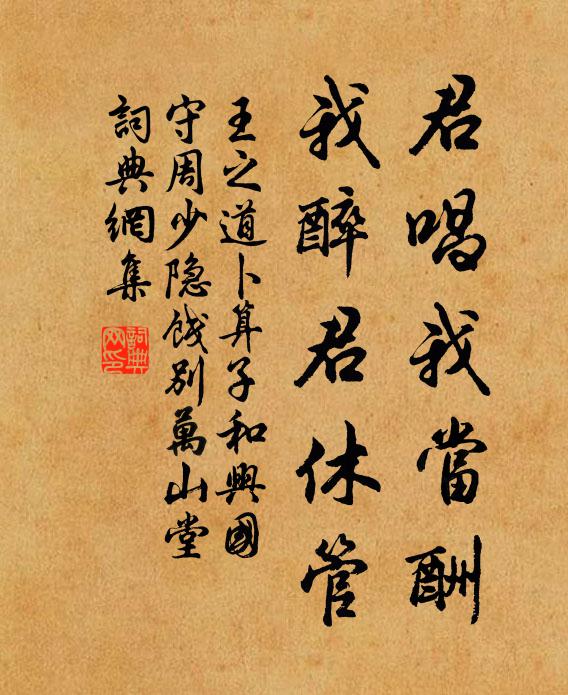 君唱我當酬
我醉君休管
王之道卜算子和興國
守周少隐餞别萬山堂
詞典網集
詞典网印